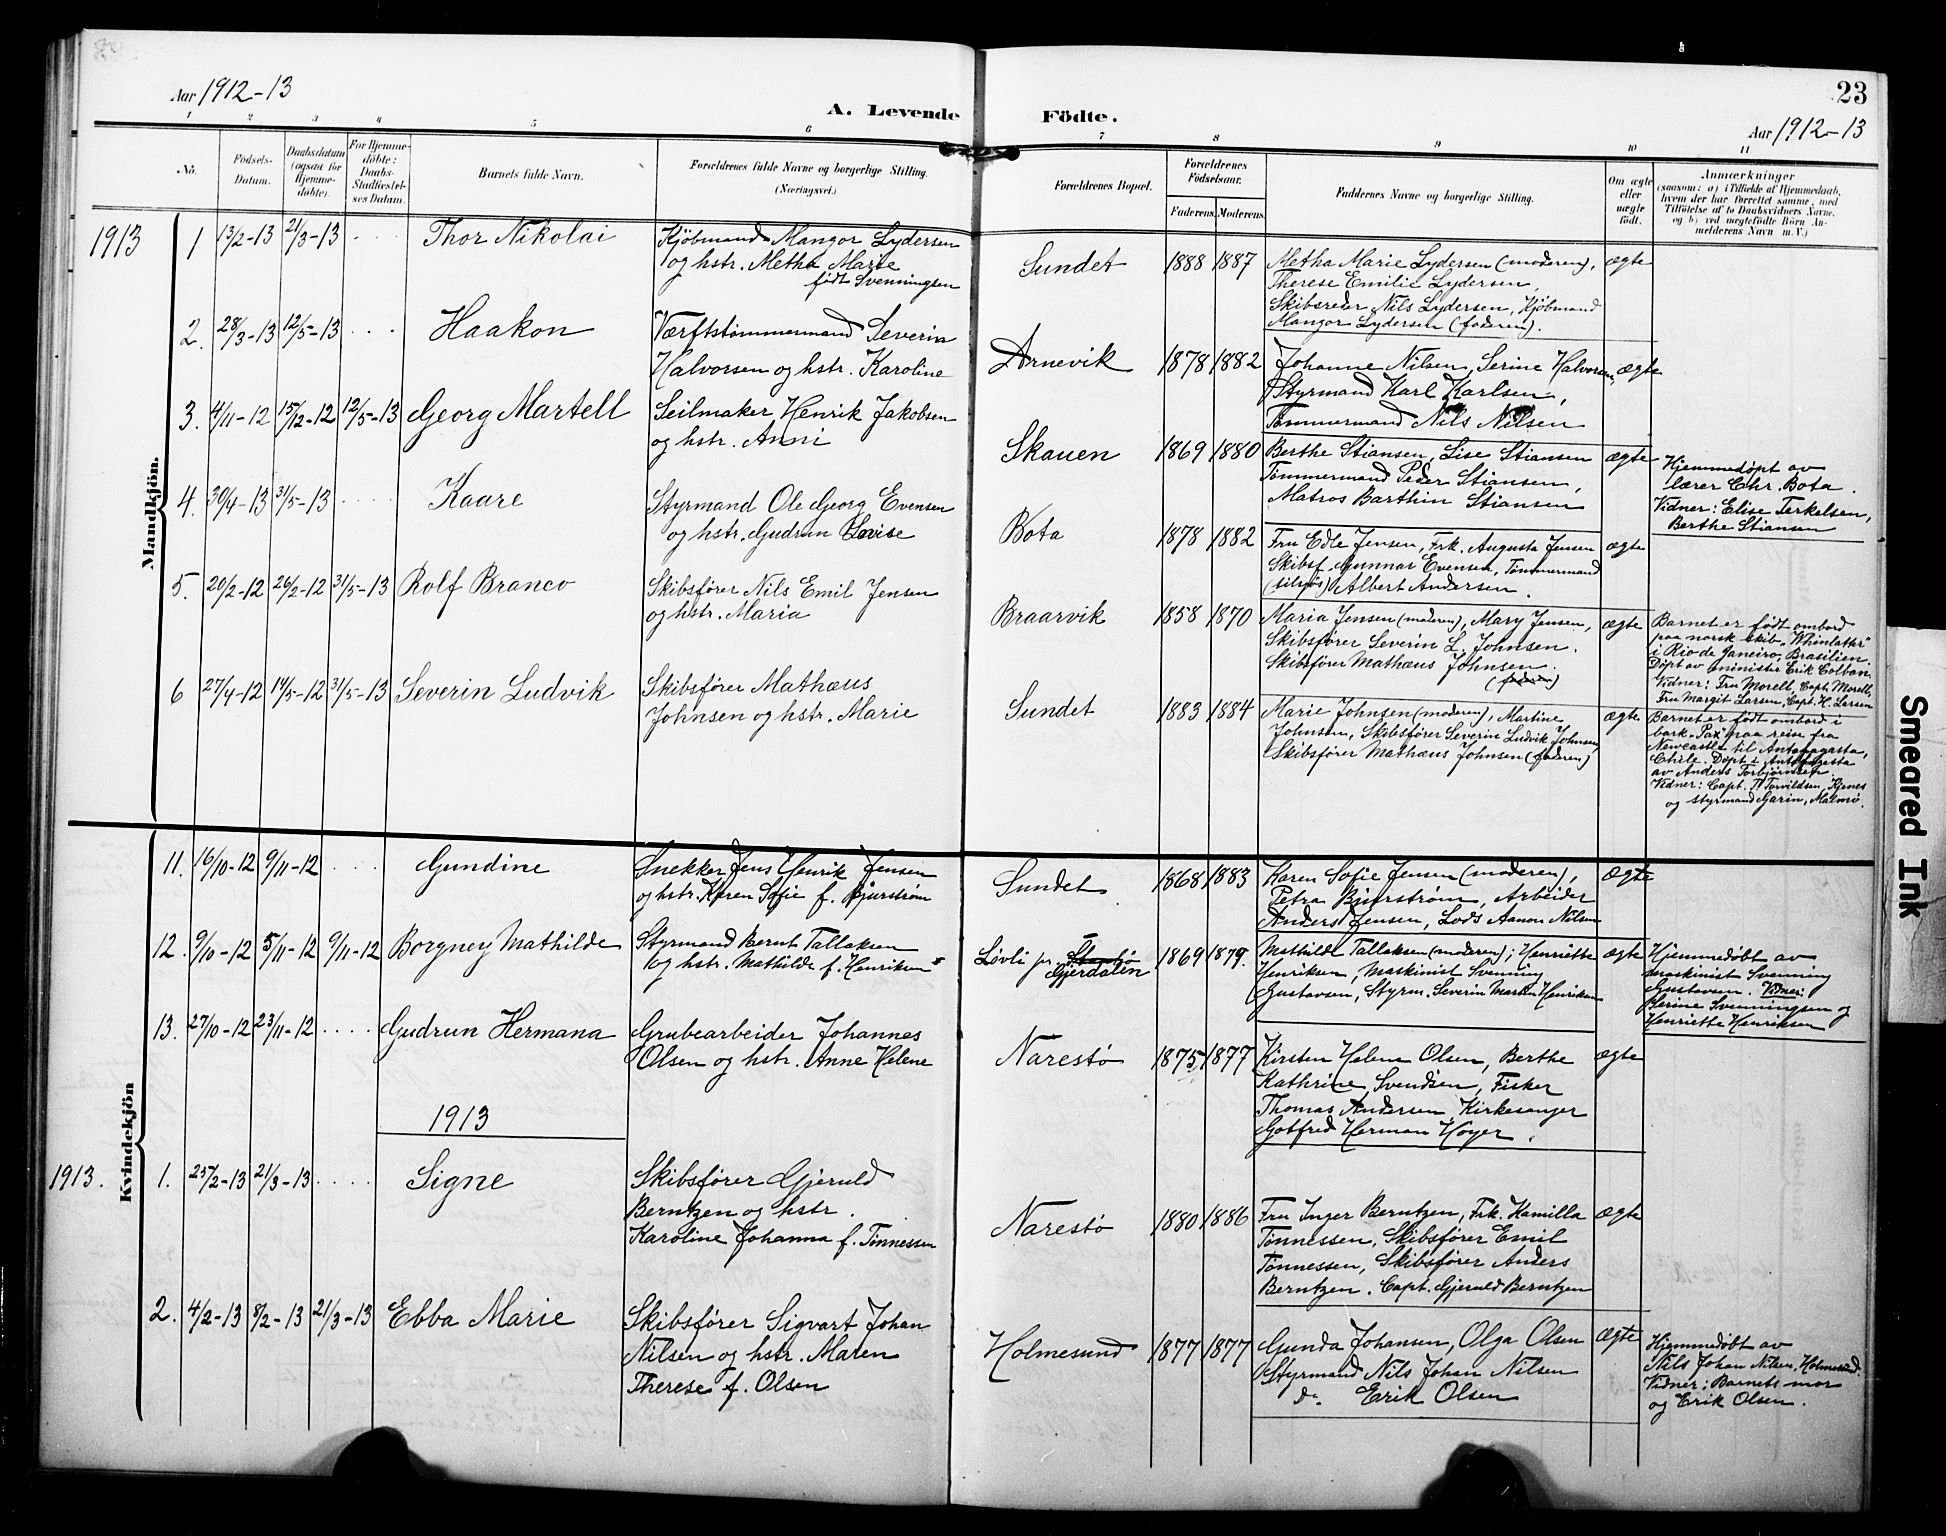 23
Aar 1912-13
A. Levende Födte.
Aar 1912-13
1 2 3 4 5 6 7 8 9 10 11
No.
Födsels-Datum.
Daabsdatum (ogsaa for Hjemme-döbte).
For Hjemme-döbte: Daabs-Stadfæstel-ses Datum.
Barnets fulde Navn.
Forældrenes fulde Navne og borgerlige Stilling. (Næringsvei.)
Forældrenes Bopæl.
Forældrenes Födselsaar.
Faderens. Moderens.
Faddernes Navne og borgerlige Stilling.
Om ægte eller uægte födt.
Anmærkninger
(saasom: a) i Tilfælde af Hjemmedaab,
hvem der har forrettet samme, med
Tilföielse af to Daabsvidners Navne,
og b) ved uægtefödte Börn An-
melderens Navn m. V.)
Mandkjön.
1913 1 13/2-13 21/3-13 Thor Nikolai
Kjøbmand Mangor Lydersen
og hstr. Metha Marie
født Svenningsen
Sundet 1888 1887
Metha Marie Lydersen (moderen),
Therese Emilie Lydersen,
Skibsreder Nils Lydersen, Kjøbmand
Mangor Lydersen (faderen).
ægte
2. 28/3-13 12/5-13 Haakon
Værftstømmermand Severin
Halvorsen og hstr. Karoline
Arnevik 1878 1882
Johanne Nilsen, Serine Halvorsen,
Styrmand Karl Karlsen,
Tømmermand Nils Nilsen
ægte
3. 4/11-12 15/12-12 12/5-13 Georg Martell
Seilmaker Henrik Jakobsen
og hstr. Anni
Skauen 1869 1880
Berthe Stiansen, Lise Stiansen
Tømmermand Peder Stiansen,
Matros Barthin Stiansen
ægte
Hjemmedøpt av
lærer Chr. Bota.
Vidner: Elise Terkelsen,
Berthe Stiansen
4. 30/4-13 31/5-13 Kaare
Styrmand Ole Georg Evensen
og hstr. Gudrun Lovise
Bota 1878 1882
Fru Edle Jensen, Frk. Augusta Jensen
Skibsf. Gunnar Evensen, Tømmermand
(tilsjøs) Albert Andersen.
ægte
5. 20/2-12 26/2-12 31/5-13 Rolf Branco
Skibsfører Nils Emil Jensen
og hstr. Maria
Braarvik 1858 1870
Maria Jensen (moderen), Mary Jensen,
Skibsfører Severin L. Johnsen.
Skibsfører Mathæus Johnsen.
(faderen)
ægte
Barnet er født ombord
paa norsk skib "Whinlatter"
i Rio de Janeiro, Brasilien.
Døpt av minister Erik Colban.
Vidner: Fru Morell, Capt. Morell,
Fru Margit Larsen, Capt. H. Larsen
6 27/4-12 14/5-12 31/5-13 Severin Ludvik
Skibsfører Mathæus
Johnsen og hstr. Marie
Sundet 1883 1884
Marie Johnsen (moderen), Martine
Johnsen, Skibsfører Severin Ludvik Johnsen,
Skibsfører Mathæus Johnsen (faderen)
ægte
Barnet er født ombord i
bark "Pax" paa reise fra
Newcastle til Antofagasta,
Chile. Døpt i Antofagasta
av Anders Torbjørnsen.
Vidner: Capt. T. Torvildsen, Kjenes
og styrmand Garin, Malmø.
Kvindekjön
11. 16/10-12 9/11-12 Gundine
Snekker Jens Henrik Jensen
og hstr. Karen Sofie f. Bjurstrøm
Sundet 1868 1883
Karen Sofie Jensen (moderen),
Petra Bjurstrøm, Arbeider
Anders Jensen, Lods Aanon Nilsen
ægte
12. 9/10-12 5/11-12 9/11-12 Borgney Mathilde
Styrmand Bernt Tallaksen
og hstr. Mathilde f. Henriksen
Løvli pr. Gjerdalen 1869 1879.
Mathilde Tallaksen (moderen); Henriette
Henriksen, Maskinist Svenning
Gustavsen, Styrm. Severin Martin Henriksen
ægte
Hjemmedøbt av
maskinist Svenning
Gustavsen. Vidner:
Serine Svenningsen og
Henriette Henriksen
13. 27/10-12 23/11-12 Gudrun Hermana
Grubearbeider Johannes
Olsen og hstr. Anne Helene
Narestø 1875 1877
Kirsten Helene Olsen, Berthe
Kathrine Svendsen, Fisker
Thomas Andersen, Kirkesanger
Gotfred Herman Høyer.
ægte
1913
1913. 1. 25/2-13 21/3-13 Signe
Skibsfører Gjeruld
Berntzen og hstr.
Karoline Johanna f. Tønnessen
Narestø 1880 1886
Fru Inger Berntzen, Frk. Kamilla
Tønnessen, Skibsfører Emil
Tønnessen, Skibsfører Anders
Berntzen. Capt. Gjeruld Berntzen
ægte
2. 4/2-13 8/2-13 21/3-13 Ebba Marie
Skibsfører Sigvart Johan
Nilsen og hstr. Maren
Therese f. Olsen
Holmesund 1877 1877
Gunda Johansen, Olga Olsen
Styrmand Nils Johan Nilsen
do. Erik Olsen
ægte
Hjemmedøbt av
Nils Johan Nilsen, Holmesund.
Vidner: Barnets mor
og Erik Olsen.
Smeared Ink